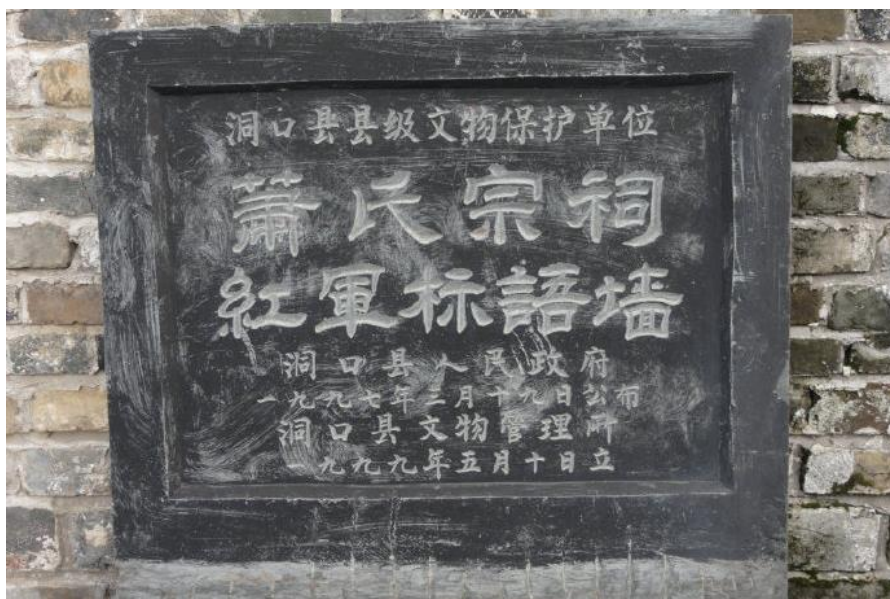 洞口县县级文物保护单位
蕭氏宗祠
紅軍标語墙
洞口县人民政府
一九九七年二月十九日公布
洞口县文物管理所
一九九九年五月十日立